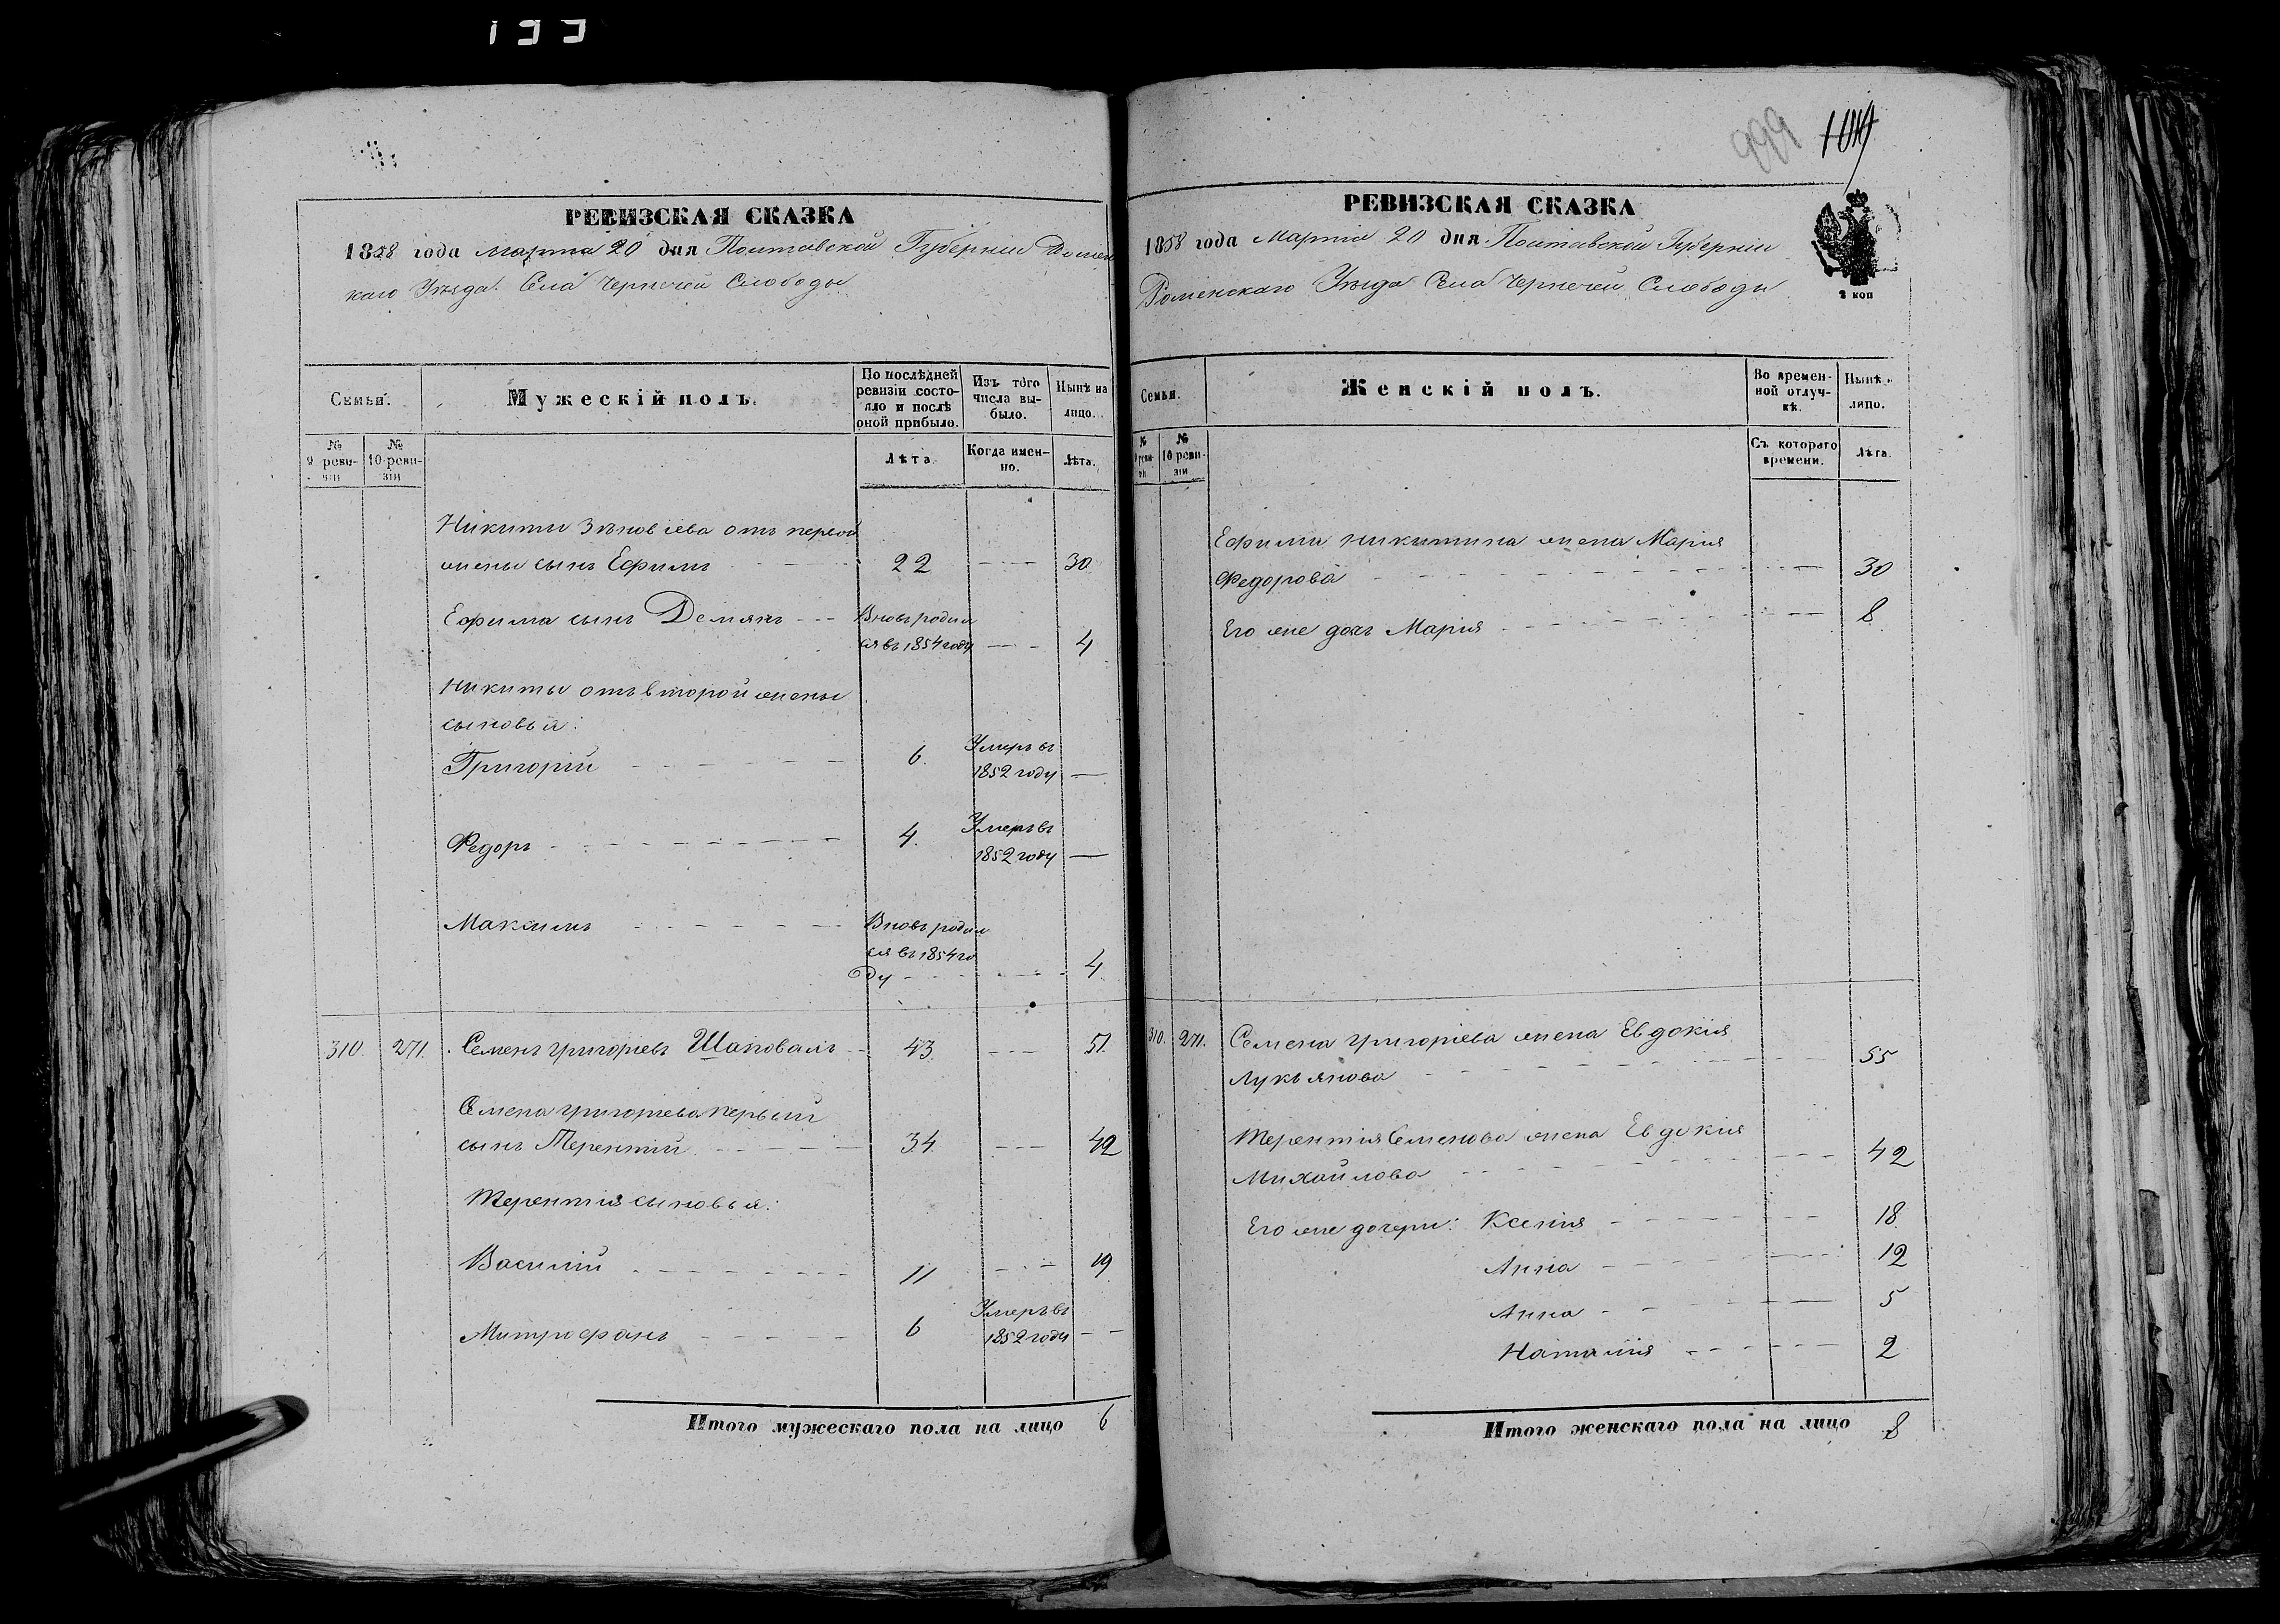 199
РЕВИЗСКАЯ СКАЗКА
1858 года Марта 20 дня Полтавской Губерніи Ромен
скаго Уѣзда Села Чернечей Слободы
Семьи.
Мужескій полъ.
По послѣдней ревизіи состояло и послѣ оной прибыло.
Изъ того числа выбыло.
Нынѣ на лицо.
№ 9 ревизіи
№ 10 ревизіи
Лѣта.
Когда именно.
Лѣта.
Никиты Зѣновіева отъ первой
жены сынъ Ефимъ 22 30
Ефима сынъ Демянъ Вновь родил
ся въ 1854 году 4
Никиты отъ второй жены
сыновья:
Григорій 6. Умеръ въ
1852 году
Федоръ 4. Умеръ въ
1852 году
Максимъ Вновь родил
ся въ 1854 го
ду 4.
310. 271. Семенъ Григорьевъ Шаповалъ 43. 51.
Семена Григорьева первый
сынъ Терентій 34. 42
Терентія сыновья:
Василій 11 19
Митрофанъ 6 Умеръ въ
1852 году
Итого мужескаго пола на лицо 6
999 1019
РЕВИЗСКАЯ СКАЗКА
1858 года Марта 20 дня Полтавской Губерніи
Роменскаго Уѣзда Села Чернечей Слободы
2 коп
Семьи.
Женскій полъ.
Во временной отлучкѣ.
Нынѣ лицо.
№ 9 ревизіи
№ 10 ревизіи
Съ котораго времени.
Лѣта.
Ефима Никитина жена Марія
Федорова 30
Его же дочь Марія 8
310. 271. Семена Григоріева жена Евдокія
Лукьянова 55
Терентія Семенова жена Евдокія
Михайлова 42
Его же дочери: Ксенія 18.
Анна 12
Анна 5
Наталія 2
Итого женскаго пола на лицо 8